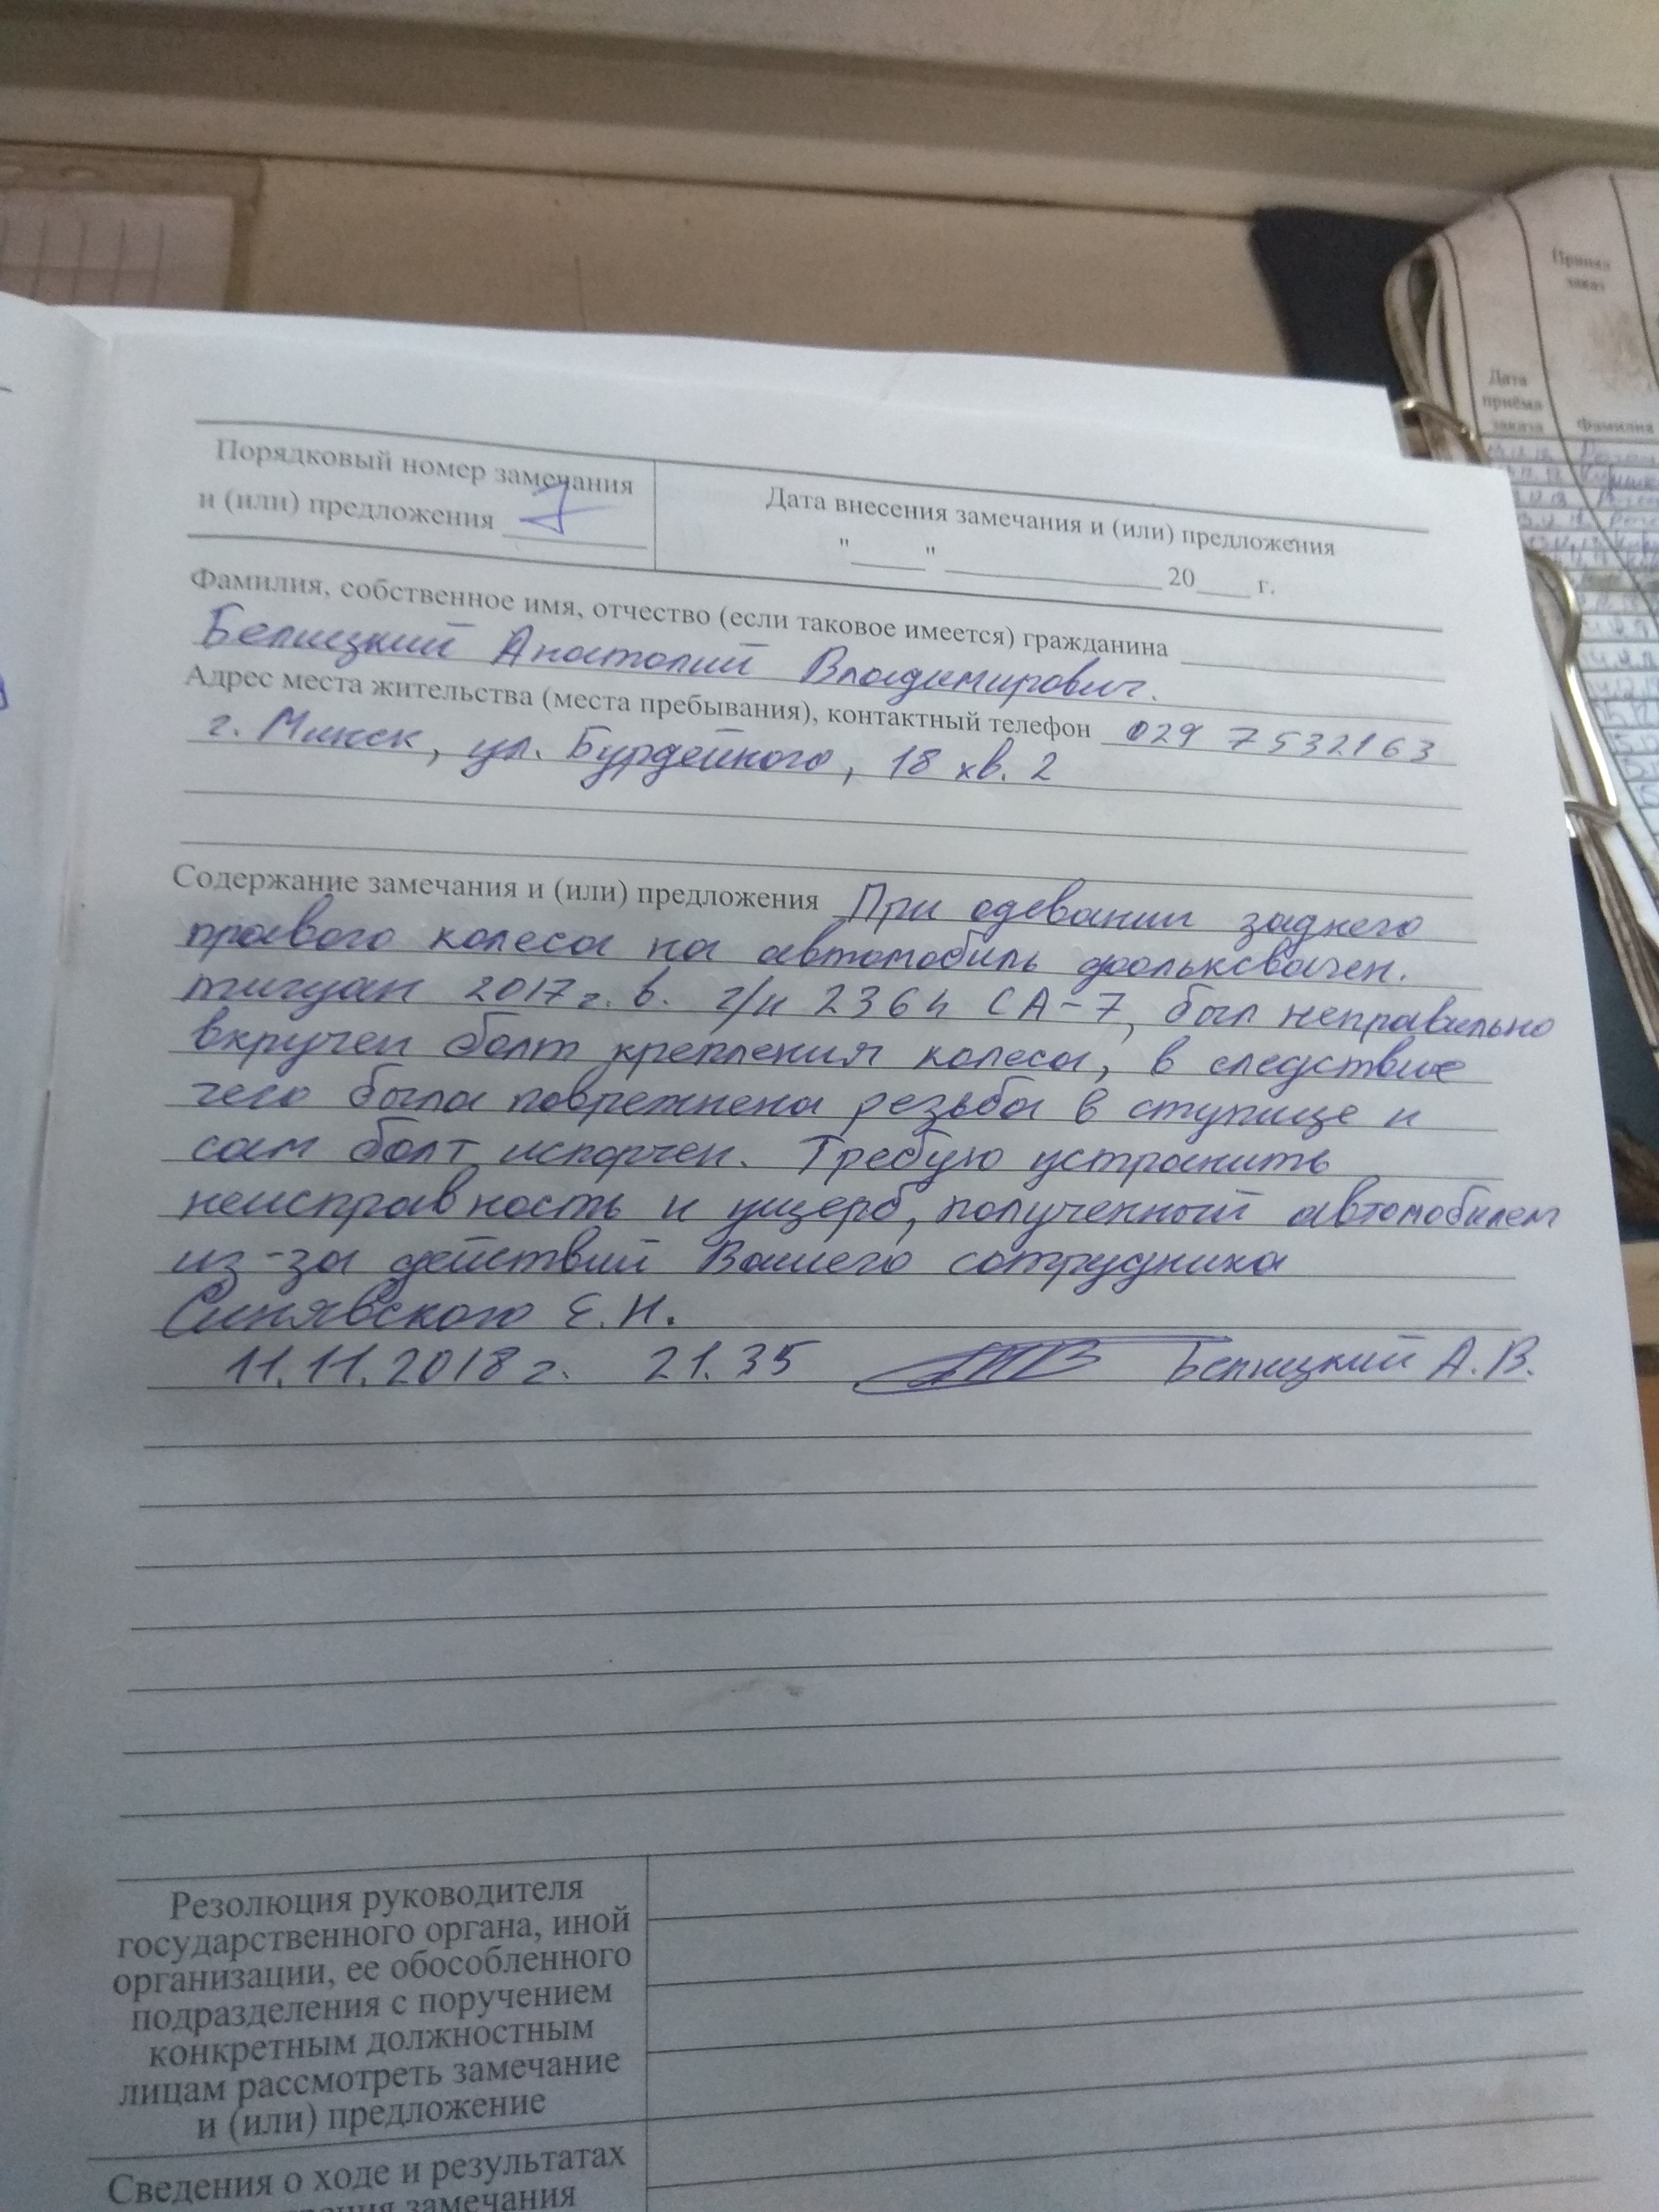 Порядковый номер замечания
и (или) предложения 7
Дата внесения замечания и (или) предложения
"____" ____________ 20___ г.
Фамилия, собственное имя, отчество (если таковое имеется) гражданина
Белицкий Анатолий Владимирович.
Адрес места жительства (места пребывания), контактный телефон 029 7532163
г. Минск, ул. Бурдейного, 18 кв. 2
Содержание замечания и (или) предложения При одевании заднего
правого колеса на автомобиль фольксваген.
тигуан 2017 г. в. г/н 2364 СА-7, был неправильно
вкручен болт крепления колеса, в следствие
чего была поврежнена резьба в ступице и
сам болт испорчен. Требую устранить
неисправность и ущерб, полученный автомобилем
из-за действий Вашего сотрудника
Синявского Е.Н.
11.11.2018 г. 21.35 Белицкий А.В.
Резолюция руководителя
государственного органа, иной
организации, ее обособленного
подразделения с поручением
конкретным должностным
лицам рассмотреть замечание
и (или) предложение
Сведения о ходе и результатах
замечания
Принял
заказ
Дата
приёма
заказа
Фамилия